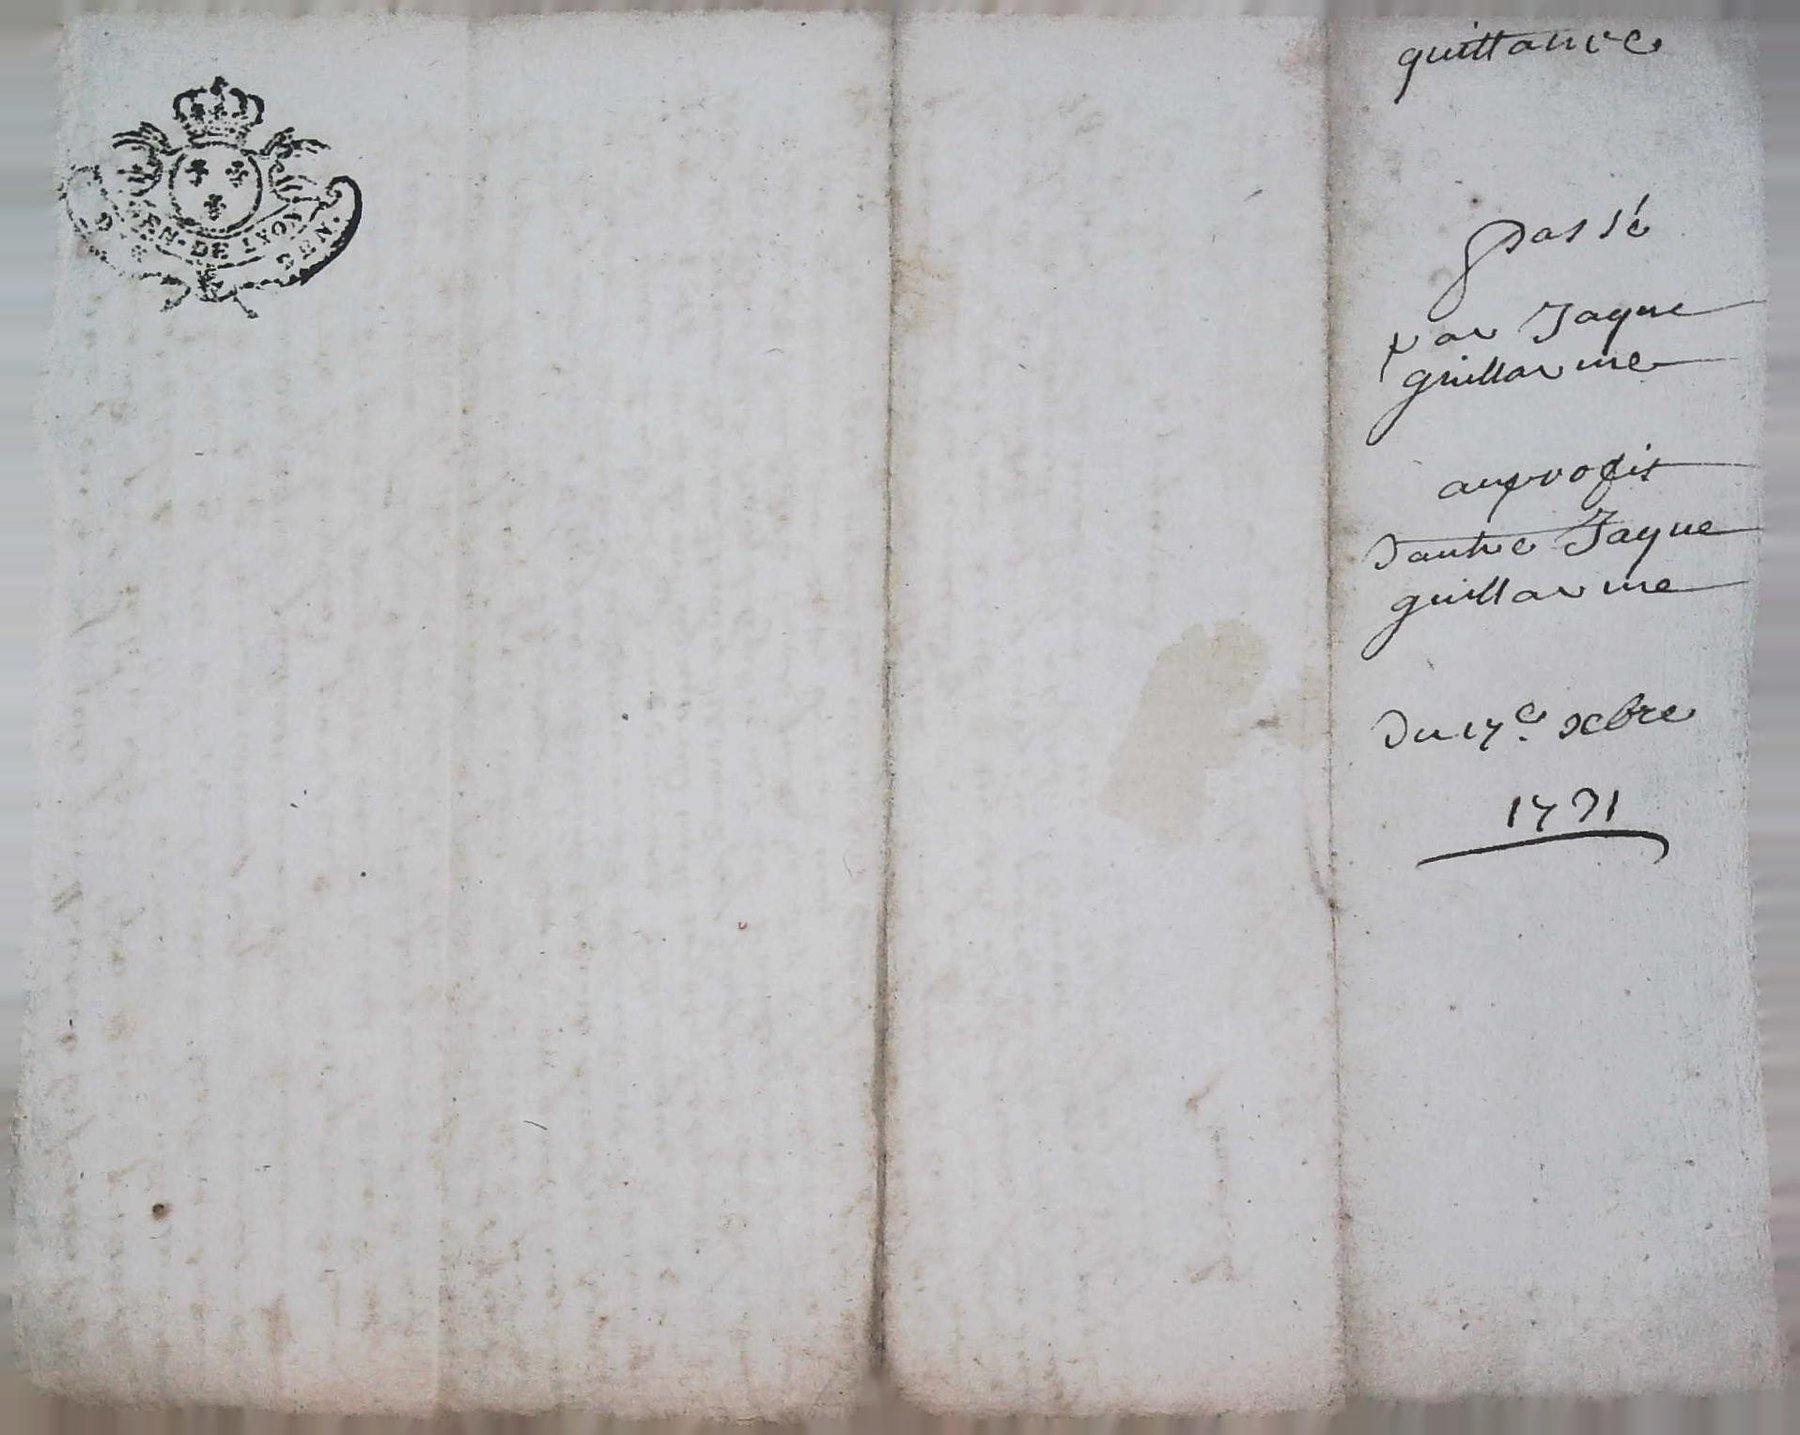 GEN. DE LYON
quittance
passé
par Jaque
guillarme
auprofit
dautre Jaque
guillarme
Du 17e xbre
1731